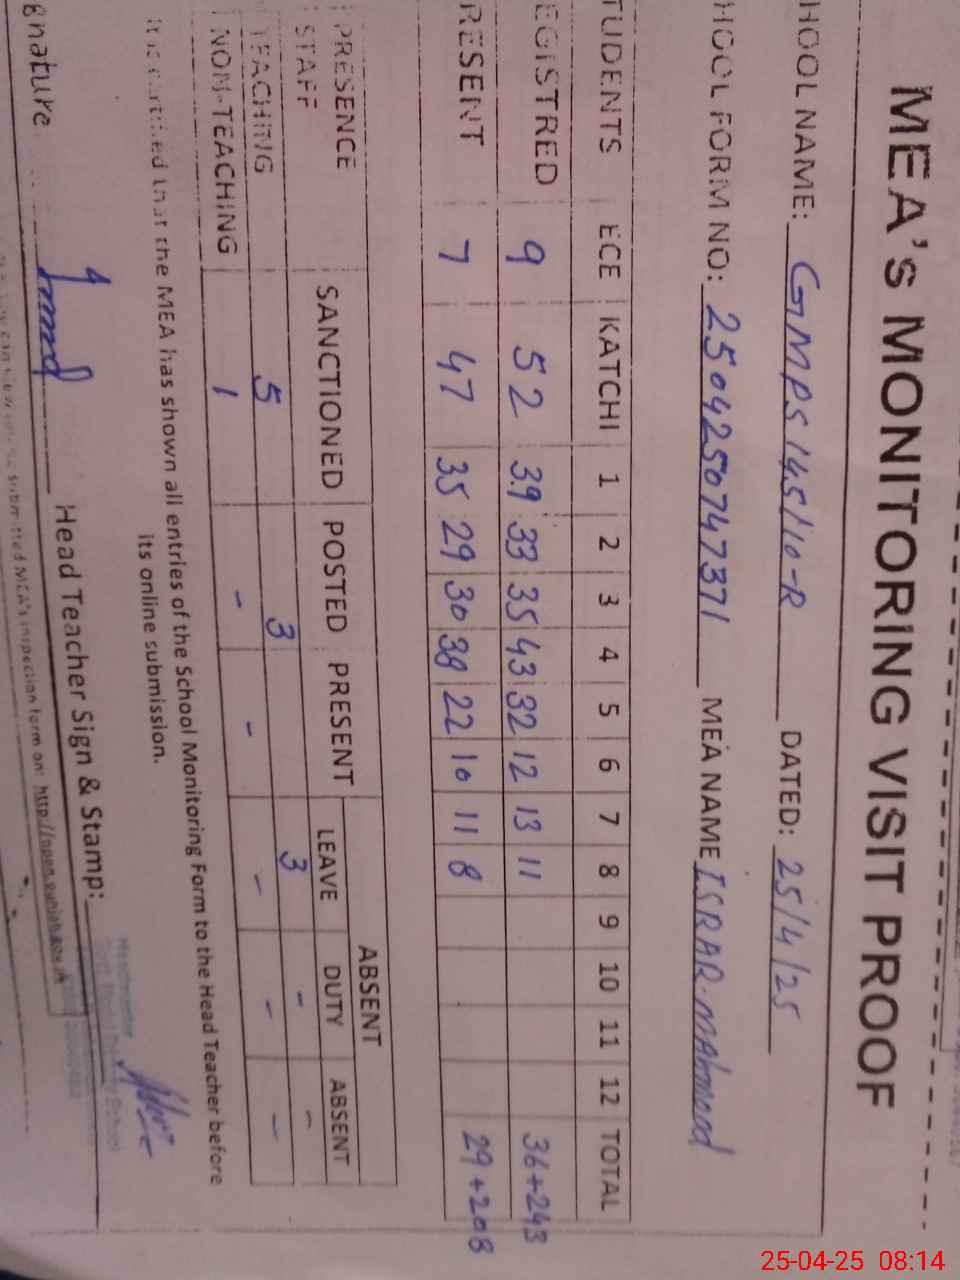 MEA's MONITORING VISIT PROOF
HOOL NAME: GMPS 145/10-R DATED: 25/4/25
HOOL FORM NO: 2504250747371 MEA NAME ISRAR. MAhmood
TUDENTS ECE KATCHI 1 2 3 4 5 6 7 8 9 10 11 12 TOTAL
EGISTRED 9 52 39 33 35 43 32 12 13 11 36+243
RESENT 7 47 35 29 30 38 22 10 11 8 29+208
PRESENCE STAFF SANCTIONED POSTED PRESENT ABSENT
LEAVE DUTY ABSENT
TEACHING 5 3 - 3 - -
NON-TEACHING 1 - - - - -
It is certified that the MEA has shown all entries of the School Monitoring Form to the Head Teacher before
its online submission.
gnature Head Teacher Sign & Stamp:
submitted MEA's inspection form on: http://open.punjab.gov.pk
25-04-25 08:14